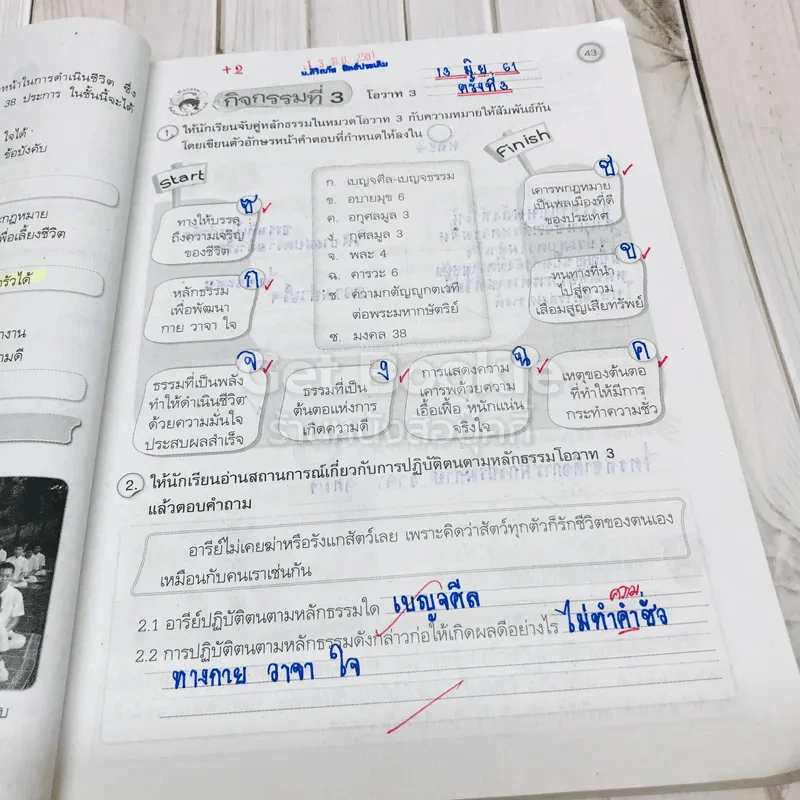 หน้าในการดำเนินชีวิต ซึ่ง
38 ประการ ในชั้นนี้จะได้
ใจได้
ข้อบังคับ
กฎหมาย
พื่อเลี้ยงชีวิต
รัวได้
างาน
ามดี
+2
43
13 มิย. 61
ครั้งที่ 3
กิจกรรมที่ 3 โอวาท 3
1. ให้นักเรียนจับคู่หลักธรรมในหมวดโอวาท 3 กับความหมายให้สัมพันธ์กัน
โดยเขียนตัวอักษรหน้าคำตอบที่กำหนดให้ลงใน
Start
Finish
ก. เบญจศีล-เบญจธรรม
ข. อบายมุข 6
ค. อกุศลมูล 3
ง. กุศลมูล 3
จ. พละ 4
ฉ. คารวะ 6
ช. ความกตัญญูกตเวที
ต่อพระมหากษัตริย์
ซ. มงคล 38
ซ
ทางให้บรรลุ
ถึงความเจริญ
ของชีวิต
ช
เคารพกฎหมาย
เป็นพลเมืองที่ดี
ของประเทศ
ก
หลักธรรม
เพื่อพัฒนา
กาย วาจา ใจ
ข
หนทางที่นำ
ไปสู่ความ
เสื่อมสูญเสียทรัพย์
จ
ธรรมที่เป็นพลัง
ทำให้ดำเนินชีวิต
ด้วยความมั่นใจ
ประสบผลสำเร็จ
ง
ธรรมที่เป็น
ต้นตอแห่งการ
เกิดความดี
ฉ
การแสดงความ
เคารพด้วยความ
เอื้อเฟื้อ หนักแน่น
จริงใจ
ค
เหตุของต้นตอ
ที่ทำให้มีการ
กระทำความชั่ว
Get Dochie
2. ให้นักเรียนอ่านสถานการณ์เกี่ยวกับการปฏิบัติตนตามหลักธรรมโอวาท 3
แล้วตอบคำถาม
อารีย์ไม่เคยฆ่าหรือรังแกสัตว์เลย เพราะคิดว่าสัตว์ทุกตัวก็รักชีวิตของตนเอง
เหมือนกับคนเราเช่นกัน
2.1 อารีย์ปฏิบัติตนตามหลักธรรมใด เบญจศีล
ความ
2.2 การปฏิบัติตนตามหลักธรรมดังกล่าวก่อให้เกิดผลดีอย่างไร ไม่ทำคำชั่ว
ทางกาย วาจา ใจ